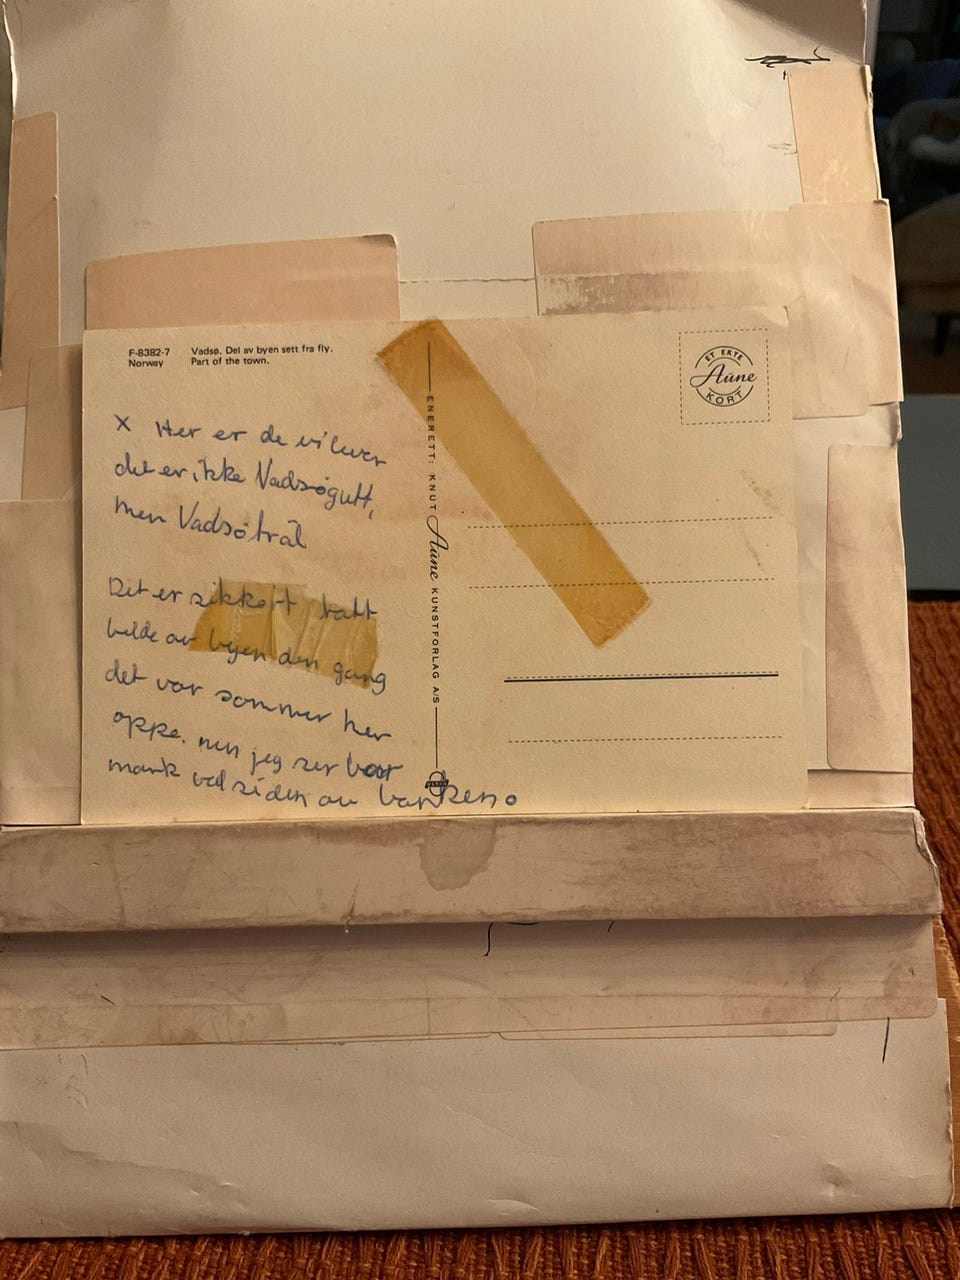 F-8382-7 Vadsø. Del av byen sett fra fly.
Norway Part of the town.
ET EKTE
Aūne
KORT
X Her er de vi lever
det er, ikke Vadsøgutt,
men Vadsøtrål
Det er sikkert tatt
bilde av byen den gang
det var sommer her
oppe. men jeg ser bar
mark ved siden av banken.
ENERETT: KNUT Aūne KUNSTFORLAG A/S